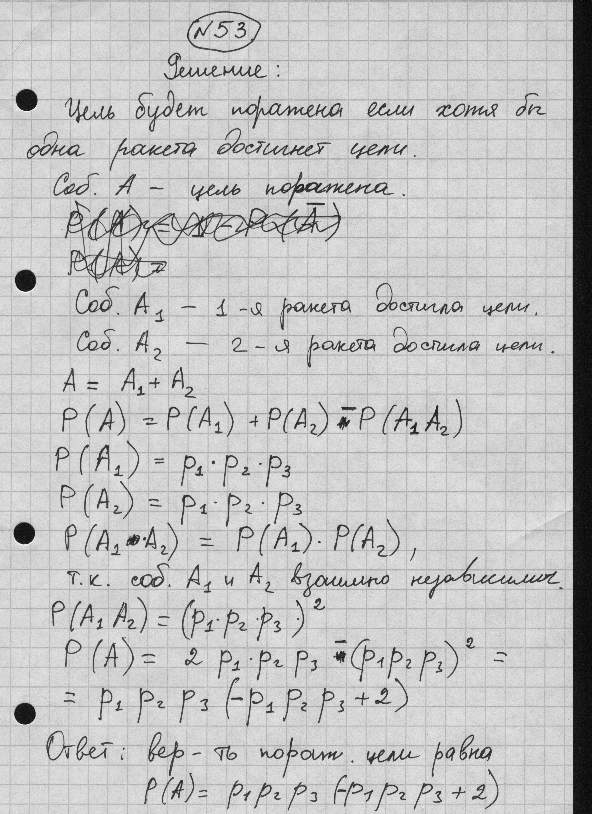 №53
Решение:
Цель будет поражена если хотя бы
одна ракета достигнет цели.
Соб. A – цель поражена.
P(A) = 1 - P(Ā)
P(A) =
Соб. A₁ – 1-я ракета достигла цели.
Соб. A₂ – 2-я ракета достигла цели.
A = A₁ + A₂
P(A) = P(A₁) + P(A₂) - P(A₁A₂)
P(A₁) = p₁·p₂·p₃
P(A₂) = p₁·p₂·p₃
P(A₁·A₂) = P(A₁)·P(A₂),
т.к. соб. A₁ и A₂ взаимно независимы.
P(A₁A₂) = (p₁·p₂·p₃·)²
P(A) = 2 p₁·p₂ p₃ - (p₁p₂p₃)² =
= p₁ p₂ p₃ (-p₁p₂p₃ + 2)
Ответ: вер-ть пораж. цели равна
P(A) = p₁p₂p₃ (-p₁p₂p₃ + 2)